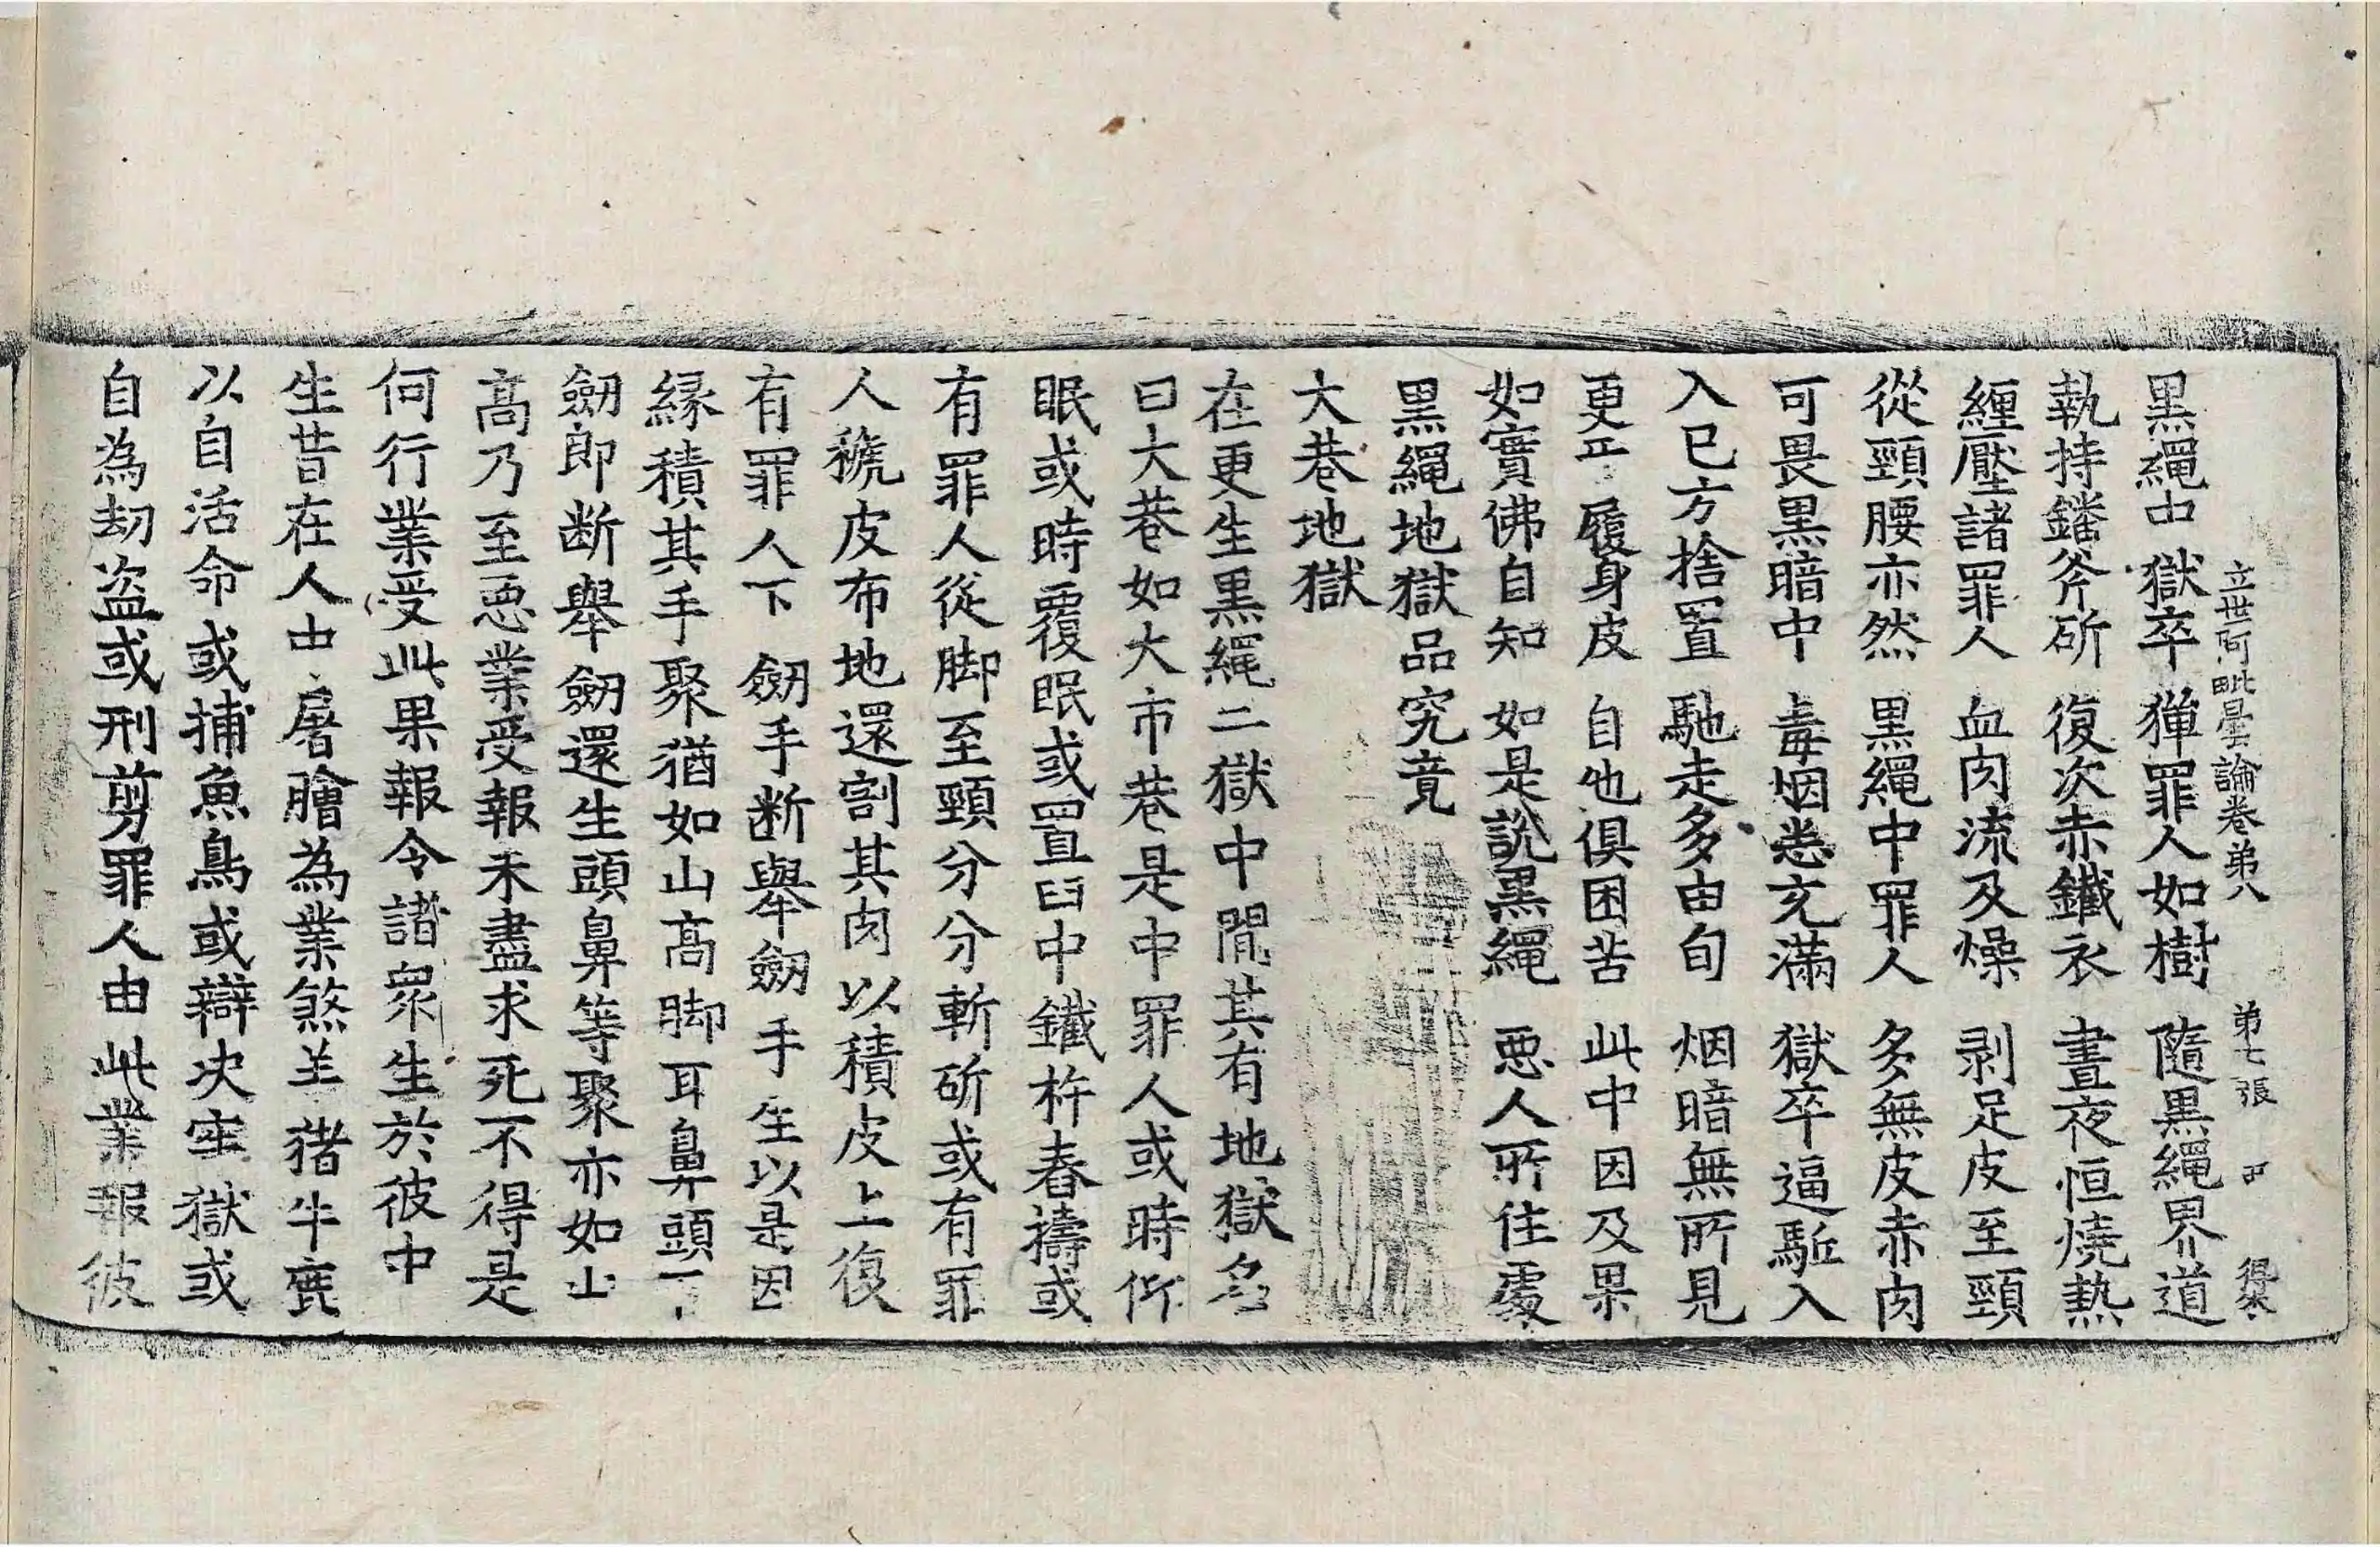 立世阿毗曇論卷第八 第七張 尸 得朱
黒繩中獄卒 獋罪人如樹 隨黒繩界道
執持鑃斧斫 復次赤鐵衣 晝夜恒燒熱
纒壓諸罪人 血肉流及燥 剥足皮至頸
從頸腰亦然 黒繩中罪人 多無皮赤肉
可畏黒暗中 毒烟悉充滿 獄卒逼駈入
入已方捨置 馳走多由旬 烟暗無所見
更 履身皮 自他俱困苦 此中因及果
如實佛自知 如是說黒繩 惡人所住處
黒繩地獄品究竟
大巷地獄
在更生黒繩二獄中間其有地獄名
曰大巷如大市巷是中罪人或時仰
眠或時覆眠或置臼中鐵杵舂擣或
有罪人從脚至頸分分斬斫或有罪
人褫皮布地還割其肉以積皮上復
有罪人下劒手断舉劒手生以是因
緣積其手聚猶如山高脚耳鼻頭下
劒即断舉劒還生頭鼻等聚亦如山
高乃至惡業受報未盡求死不得是
何行業受此果報令諸衆生於彼中
生昔在人中屠膾為業煞羊猪牛鹿
以自活命或捕魚鳥或辯决牢獄或
自為劫盗或刑剪罪人由此業報彼